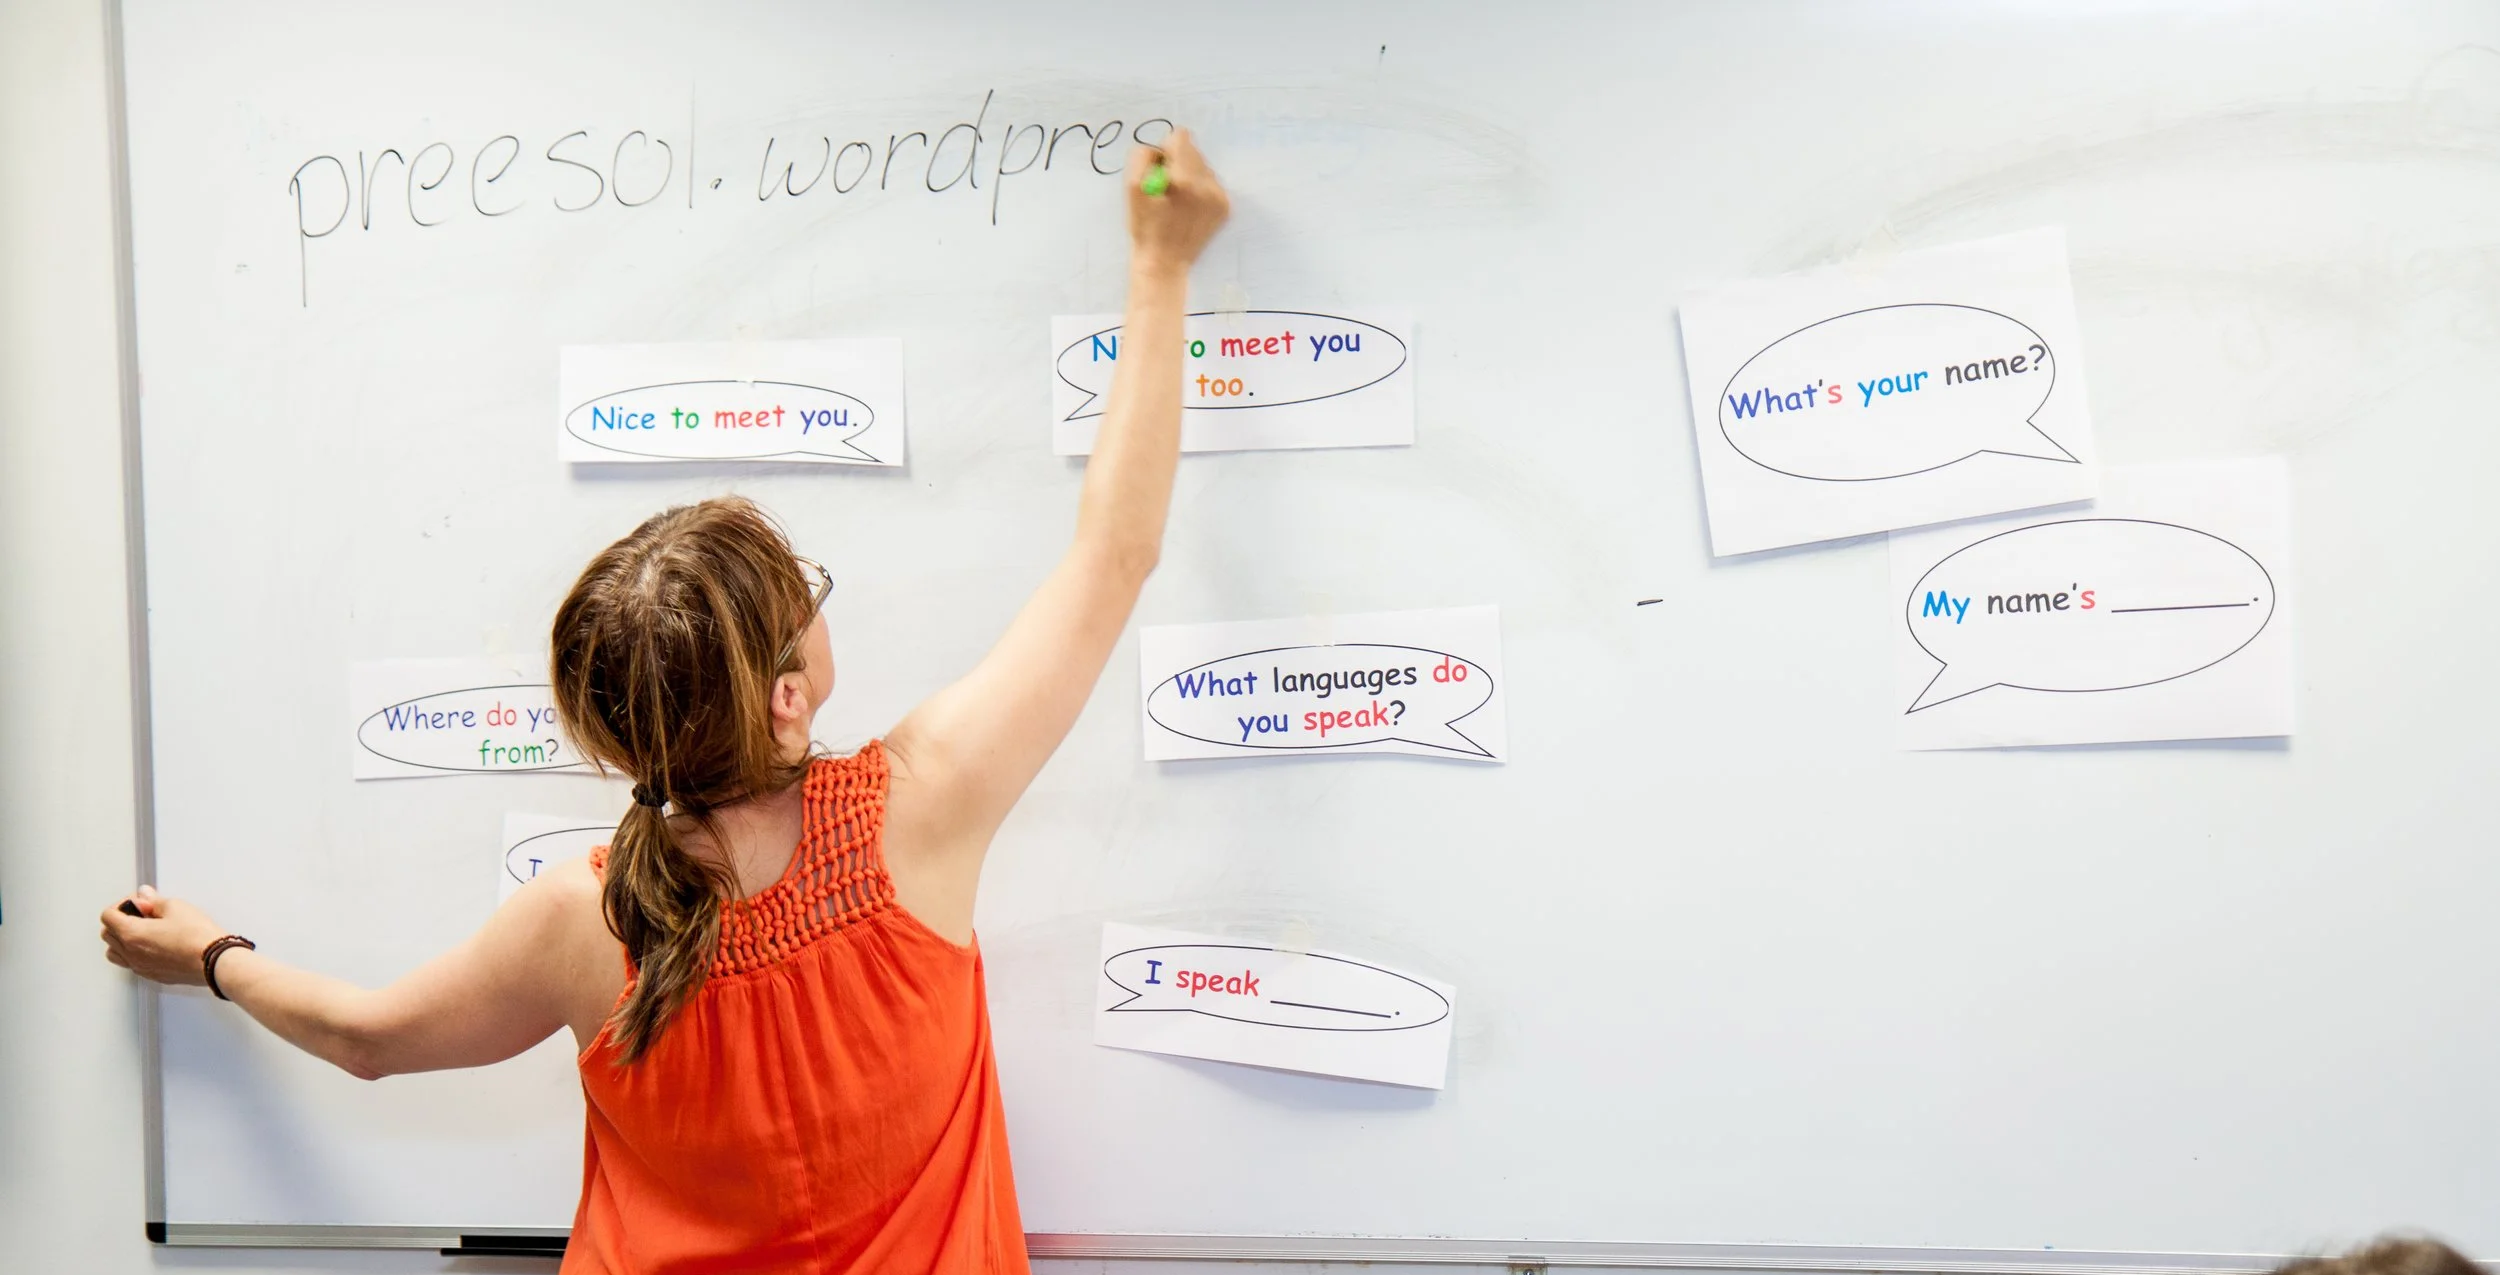 preesol.wordpres
Nice to meet you.
meet you
too.
What's your name?
My name's ________.
Where do
from?
What languages do
you speak?
I
I speak ________.